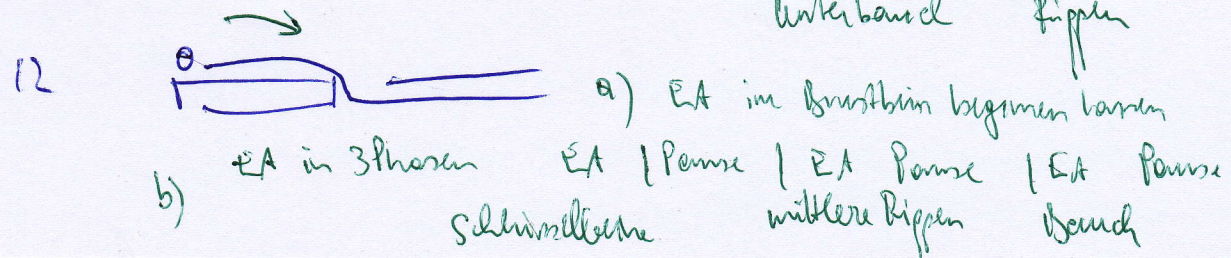 Unterbauch Rippen
12
a) EA im Brustbein beginnen lassen
b) EA in 3 Phasen EA | Pause | EA Pause | EA Pause
Schlüsselbeine mittlere Rippen Bauch